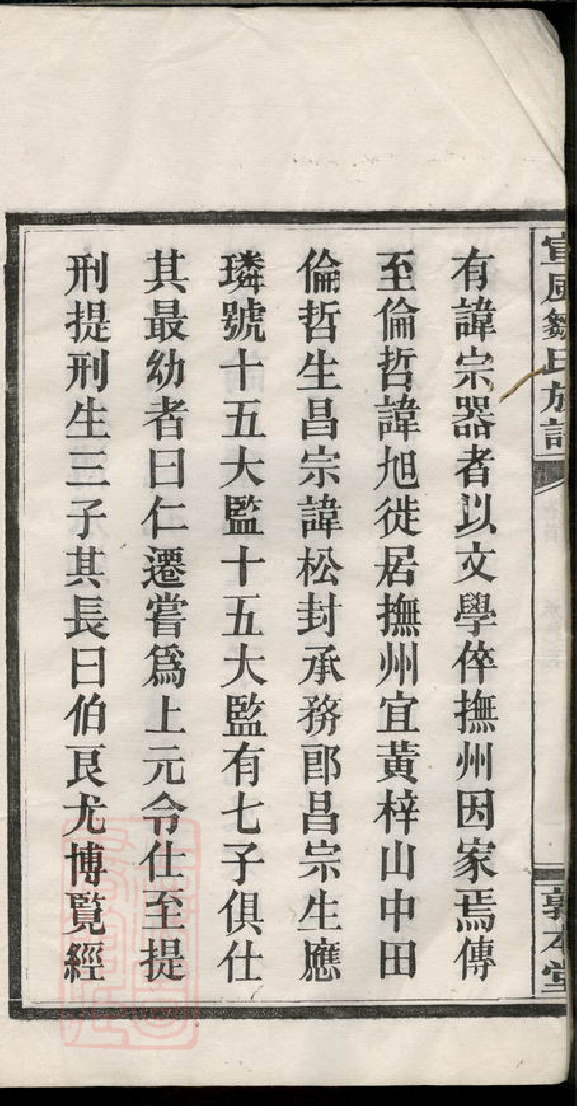 宣風鄒氏族譜
敦本堂
有諱宗器者以文學倅撫州因家焉傳
至倫哲諱旭徙居撫州宜黃梓山中田
倫哲生昌宗諱松封承務郎昌宗生應
璘號十五大監十五大監有七子俱仕
其最幼者曰仁遷嘗爲上元令仕至提
刑提刑生三子其長曰伯良尤博覽經